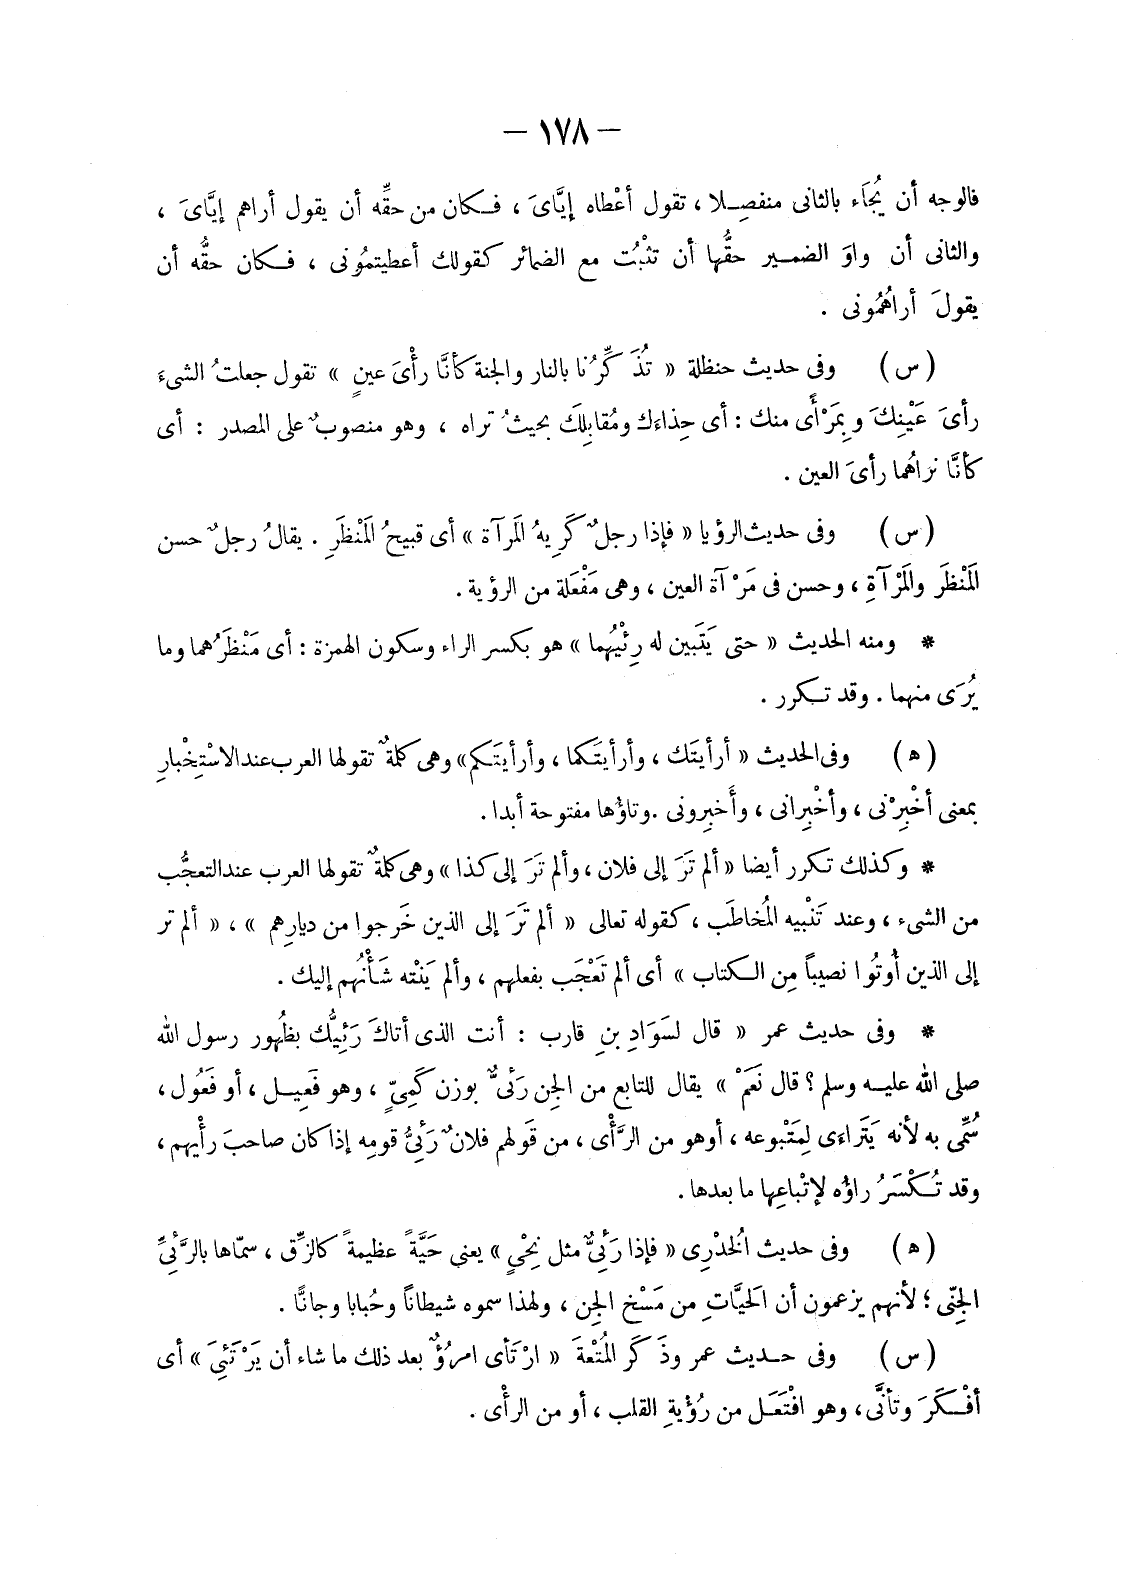 – ١٧٨ –
فالوجه أن يُجَاَء بالثانى منفصِلا ، تقول أعْطاه إيَّاىَ ، فكان من حقِّه أن يقول أراهم إيَّاىَ ،
والثانى أن واوَ الضمير حقُّها أن تثبُت مع الضمائر كقولك أعطيتمُونى ، فكان حقُّه أن
يقولَ أراهُمُونى .
( س ) وفى حديث حنظلة « تُذَكِّرُنا بالنار والجنة كأنَّا رأْىَ عينٍ » تقول جعلتُ الشىءَ
رأىَ عَيْنِكَ وبِمَرْأًى منك : أى حِذاءَك ومُقابِلَك بحيثُ تراه ، وهو منصوبٌ على المصدر : أى
كأنَّا نراهُما رأىَ العين .
( س ) وفى حديث الرؤيا « فإذا رجلٌ كَرِيهُ المَرآة » أى قبيحُ المَنْظَرِ . يقالُ رجلٌ حسن
المَنْظَر والمَرْآةِ ، وحسن فى مَرْآة العين ، وهى مَفْعَلة من الرؤية .
* ومنه الحديث « حتى يَتَبين له رِئْيُهما » هو بكسر الراء وسكون الهمزة : أى مَنْظَرُهما وما
يُرَى منهما . وقد تكرر .
( ﻫ ) وفى الحديث « أرأيتَك ، وأرأيتَكما ، وأرأيتَكم » وهى كلمةٌ تقولها العرب عند الاسْتِخْبارِ
بمعنى أخْبِرْنى ، وأخْبِرانى ، وأَخبِرونى . وتاؤُها مفتوحة أبدا .
* وكذلك تكرر أيضا « ألم تَرَ إلى فلان ، وألم تَرَ إلى كذا » وهى كلمةٌ تقولها العرب عند التعجُّب
من الشىء ، وعند تَنْبيه المُخاطَب ، كقوله تعالى « ألم تَرَ إلى الذين خَرجوا من ديارِهم » ، « ألم تر
إلى الذين أُوتُوا نصيباً مِن الكتاب » أى ألم تَعْجَب بفعلهم ، وألم يَنْته شَأْنُهم إليك .
* وفى حديث عمر « قال لسَوَادِ بنِ قارب : أنت الذى أتاكَ رَئِيُّك بظُهور رسول الله
صلى الله عليه وسلم ؟ قال نَعَمْ » يقال للتابع من الجِن رَئىٌّ بوزن كَمِىّ ، وهو فَعِيل ، أو فَعُول ،
سُمِّى به لأنه يَتَراءَى لِمَتْبوعه ، أوهو من الرَّأْى ، من قَولهم فلانٌ رَئِىُّ قومِه إذا كان صاحبَ رأْيِهم ،
وقد تُكْسَرُ راؤُه لإتْباعِها ما بعدها .
( ﻫ ) وفى حديث الخُدْرِى « فإذا رَئِىٌّ مثل نِحْىٍ » يعنى حَيَّةً عظيمةً كالزِّق ، سمّاها بالرَّئِىِّ
الجِنّى ؛ لأنهم يزعمون أن الحيَّاتِ من مَسْخ الجِن ، ولهذا سموه شيطاناً وحُبابا وجانًّا .
( س ) وفى حديث عمر وذَكَر المُتْعةَ « ارْتَأى امرُؤٌ بعد ذلك ما شاء أن يَرْتَئِىَ » أى
أفْكَرَ وتأنَّى ، وهو افْتَعَل من رُؤْيةِ القلب ، أو من الرأْى .